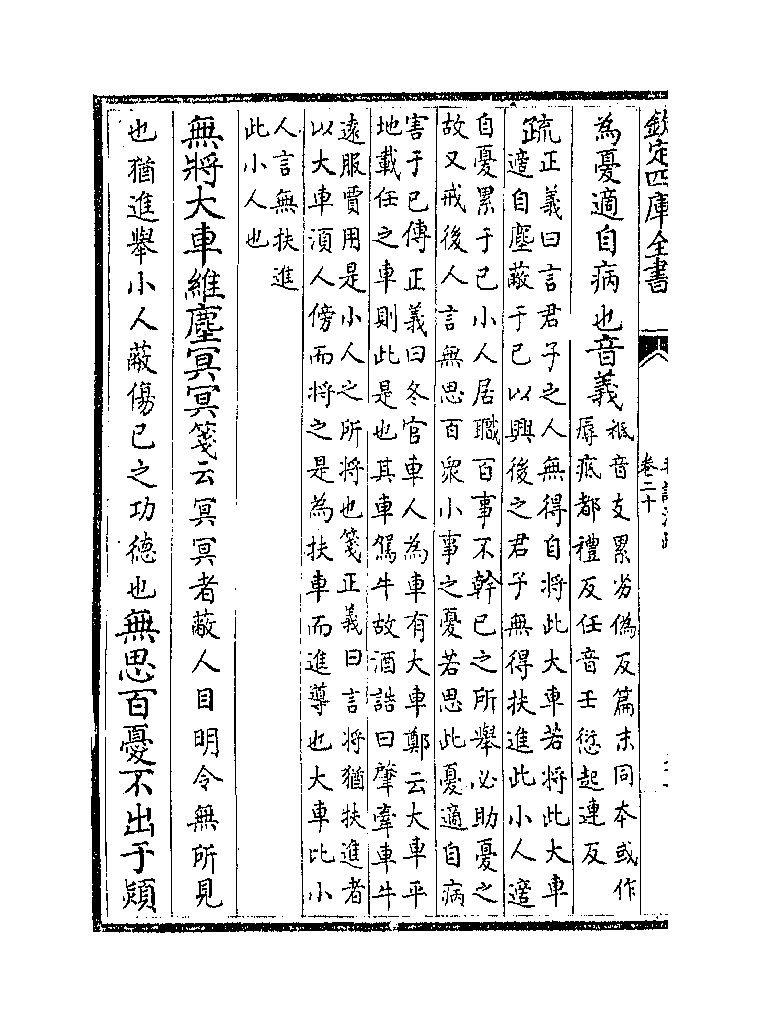 欽定四庫全書
卷二十
為憂適自病也音義祇音支累劣偽反篇末同本或作
辱疷都禮反任音壬愆起連反
疏正義曰言君子之人無得自將此大車若將此大車
適自塵蔽于已以興後之君子無得扶進此小人適
自憂累于已小人居職百事不幹已之所舉必助憂之
故又戒後人言無思百衆小事之憂若思此憂適自病
害于已傳正義曰冬官車人為車有大車鄭云大車平
地載任之車則此是也其車駕牛故酒誥曰肇牽車牛
遠服賈用是小人之所將也箋正義曰言將猶扶進者
以大車湏人傍而將之是為扶車而進導也大車比小
人言無扶進
此小人也
無將大車維塵冥冥箋云冥冥者蔽人目明令無所見
也猶進舉小人蔽傷已之功德也無思百憂不出于熲